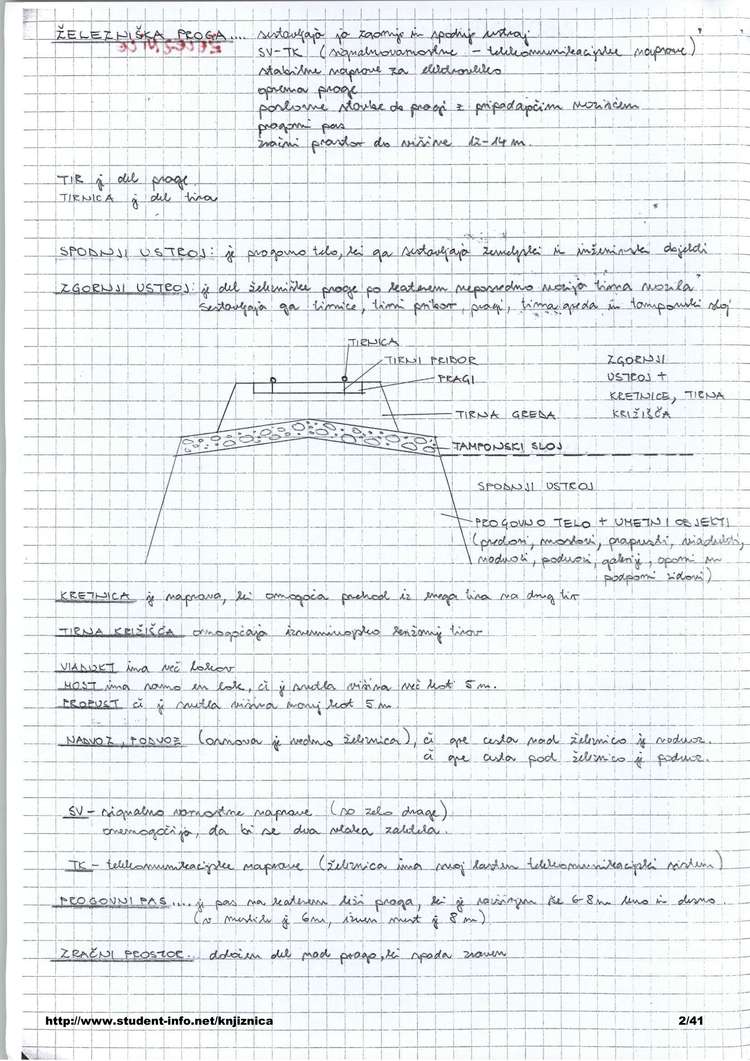 ŽELEZNIŠKA PROGA.... sestavljajo jo zgornji in spodnji ustroj
SV-TK (signalnovarnostne - telekomunikacijske naprave)
stabilne naprave za elektrovleko
oprema proge
poslovne stavbe ob progi z pripadajočim zemljiščem
progovni pas
zračni prostor do višine 12-14 m.
TIR je del proge.
TIRNICA je del tira
SPODNJI USTROJ: je progovno telo, ki ga sestavljajo zemeljski in inženirski objekti
ZGORNJI USTROJ: je del železniške proge po katerem neposredno vozijo tirna vozila
Sestavljajo ga tirnice, tirni pribor, pragi, tirna greda in tamponski sloj
TIRNICA
TIRNI PRIBOR
PRAGI
TIRNA GREDA
TAMPONSKI SLOJ
ZGORNJI
USTROJ +
KRETNICE, TIRNA
KRIŽIŠČA
SPODNJI USTROJ
PROGOVNO TELO + UMETNI OBJEKTI
(predori, mostovi, prepusti, viadukti,
nadvozi, podvozi, galerije, oporni in
podporni zidovi)
KRETNICA je naprava, ki omogoča prehod iz enega tira na drug tir
TIRNA KRIŽIŠČA omogočajo izvennivojsko križanje tirov
VIADUKT ima več lokov
MOST ima samo en lok, če je svetla višina več kot 5 m.
PROPUST če je svetla višina manj kot 5 m.
NADVOZ, PODVOZ (osnova je vedno železnica), če gre cesta nad železnico je nadvoz.
če gre cesta pod železnico je podvoz.
SV - signalno varnostne naprave (so zelo drage)
onemogočijo, da bi se dva vlaka zaletela.
TK - telekomunikacijske naprave (železnica ima svoj lasten telekomunikacijski sistem)
PROGOVNI PAS.... je pas na katerem leži proga, ki je razširjen še 6-8m levo in desno.
(v mestih je 6m, izven mest je 8m)
ZRAČNI PROSTOR... določen del nad progo, ki spada zraven
http://www.student-info.net/knjiznica 2/41